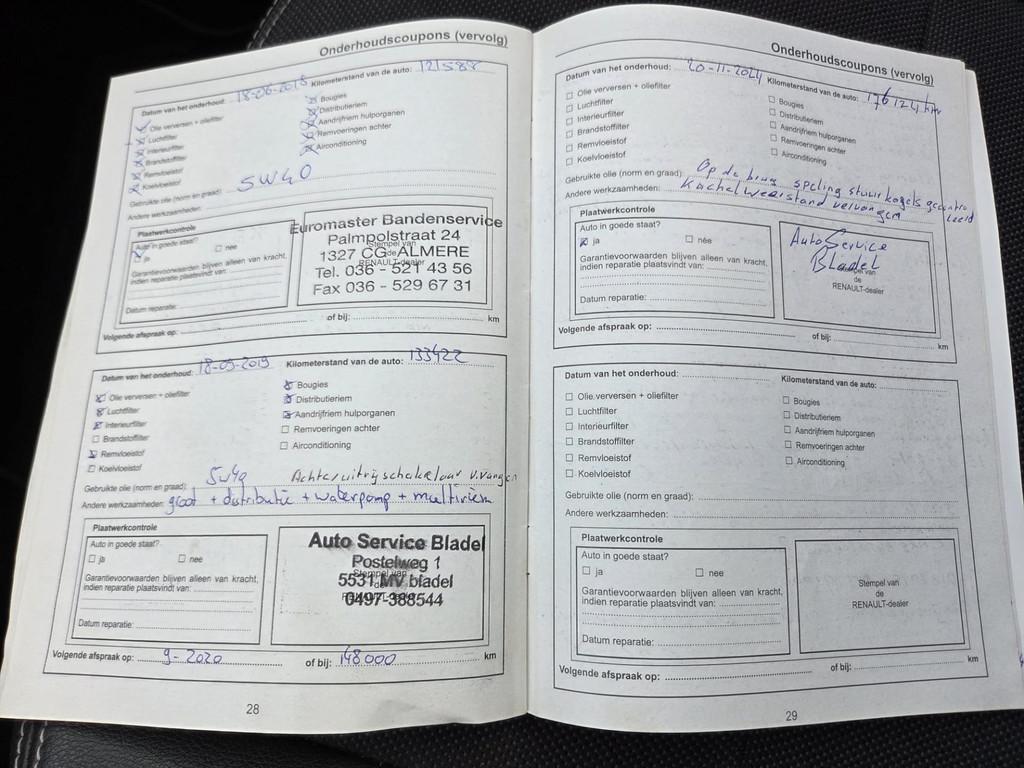 Onderhoudscoupons (vervolg)
Datum van het onderhoud: 18-06-2018 Kilometerstand van de auto: 121588
Olie verversen + oliefilter
Luchtfilter
Interieurfilter
Brandstoffilter
Remvloeistof
Koelvloeistof
Bougies
Distributieriem
Aandrijfriem hulporganen
Remvoeringen achter
Airconditioning
Gebruikte olie (norm en graad): 5W40
Andere werkzaamheden:
Plaatwerkcontrole
Auto in goede staat?
ja nee
Garantievoorwaarden blijven alleen van kracht,
indien reparatie plaatsvindt van:
Datum reparatie:
Euromaster Bandenservice
Palmpolstraat 24
1327 CG ALMERE
Tel. 036 - 521 43 56
Fax 036 - 529 67 31
Stempel van
de
RENAULT-dealer
Volgende afspraak op: of bij: km
Datum van het onderhoud: 18-09-2019 Kilometerstand van de auto: 133422
Olie verversen + oliefilter
Luchtfilter
Interieurfilter
Brandstoffilter
Remvloeistof
Koelvloeistof
Bougies
Distributieriem
Aandrijfriem hulporganen
Remvoeringen achter
Airconditioning
Gebruikte olie (norm en graad): 5W40 Achteruitrijschakelaar v.vangen
Andere werkzaamheden: groot + distributie + waterpomp + multiriem
Plaatwerkcontrole
Auto in goede staat?
ja nee
Garantievoorwaarden blijven alleen van kracht,
indien reparatie plaatsvindt van:
Datum reparatie:
Auto Service Bladel
Postelweg 1
5531 MV bladel
0497-388544
Stempel van
de
RENAULT-dealer
Volgende afspraak op: 9-2020 of bij: 148000 km
28
Onderhoudscoupons (vervolg)
Datum van het onderhoud: 20-11-2024 Kilometerstand van de auto: 176124 km
Olie verversen + oliefilter
Luchtfilter
Interieurfilter
Brandstoffilter
Remvloeistof
Koelvloeistof
Bougies
Distributieriem
Aandrijfriem hulporganen
Remvoeringen achter
Airconditioning
Gebruikte olie (norm en graad): Op de brug speling stuurkogels gecontroleerd
Andere werkzaamheden: Kachelweerstand vervangen
Plaatwerkcontrole
Auto in goede staat?
ja nee
Garantievoorwaarden blijven alleen van kracht,
indien reparatie plaatsvindt van:
Datum reparatie:
Auto Service
Bladel
Stempel van
de
RENAULT-dealer
Volgende afspraak op: of bij: km
Datum van het onderhoud: Kilometerstand van de auto:
Olie verversen + oliefilter
Luchtfilter
Interieurfilter
Brandstoffilter
Remvloeistof
Koelvloeistof
Bougies
Distributieriem
Aandrijfriem hulporganen
Remvoeringen achter
Airconditioning
Gebruikte olie (norm en graad):
Andere werkzaamheden:
Plaatwerkcontrole
Auto in goede staat?
ja nee
Garantievoorwaarden blijven alleen van kracht,
indien reparatie plaatsvindt van:
Datum reparatie:
Stempel van
de
RENAULT-dealer
Volgende afspraak op: of bij: km
29